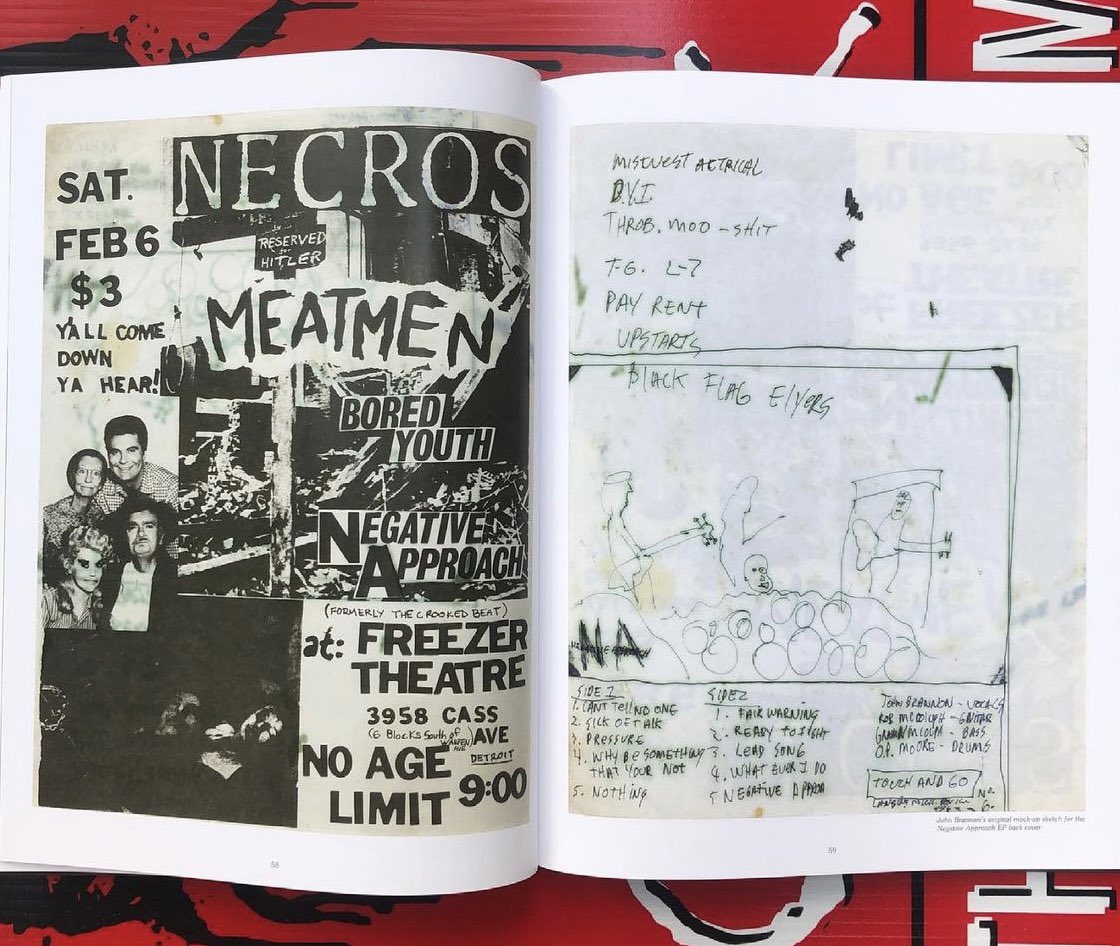 NECROS
SAT.
FEB 6
$3
Y'ALL COME
DOWN
YA HEAR!
RESERVED
for
HITLER
MEATMEN
BORED
YOUTH
NEGATIVE
APPROACH
(FORMERLY THE CROOKED BEAT)
at: FREEZER
THEATRE
3958 CASS
AVE
(6 Blocks South of WARREN)
DETROIT
NO AGE
LIMIT
9:00
58
MISEWEST AETRICAL
D.Y.I.
THROB. MOO - SHIT
T.G. L-7
PAY RENT
UPSTARTS
BLACK FLAG FLYERS
NA
SIDE 1
1. CANT TELL NO ONE
2. SICK OF TALK
3. PRESSURE
4. WHY BE SOMETHING
THAT YOUR NOT
5. NOTHING
SIDE 2
1. FAIR WARNING
2. READY TO FIGHT
3. LEAD SONG
4. WHAT EVER I DO
5 NEGATIVE
JOHN BRANNON - VOCALS
ROB MCCULPH - GUITAR
GRAHAM MCCULPH - BASS
O.P. MOORE - DRUMS
TOUCH AND GO
NO.
6
John Brannon's original mock-up sketch for the
Negative Approach EP back cover
59
M
TH